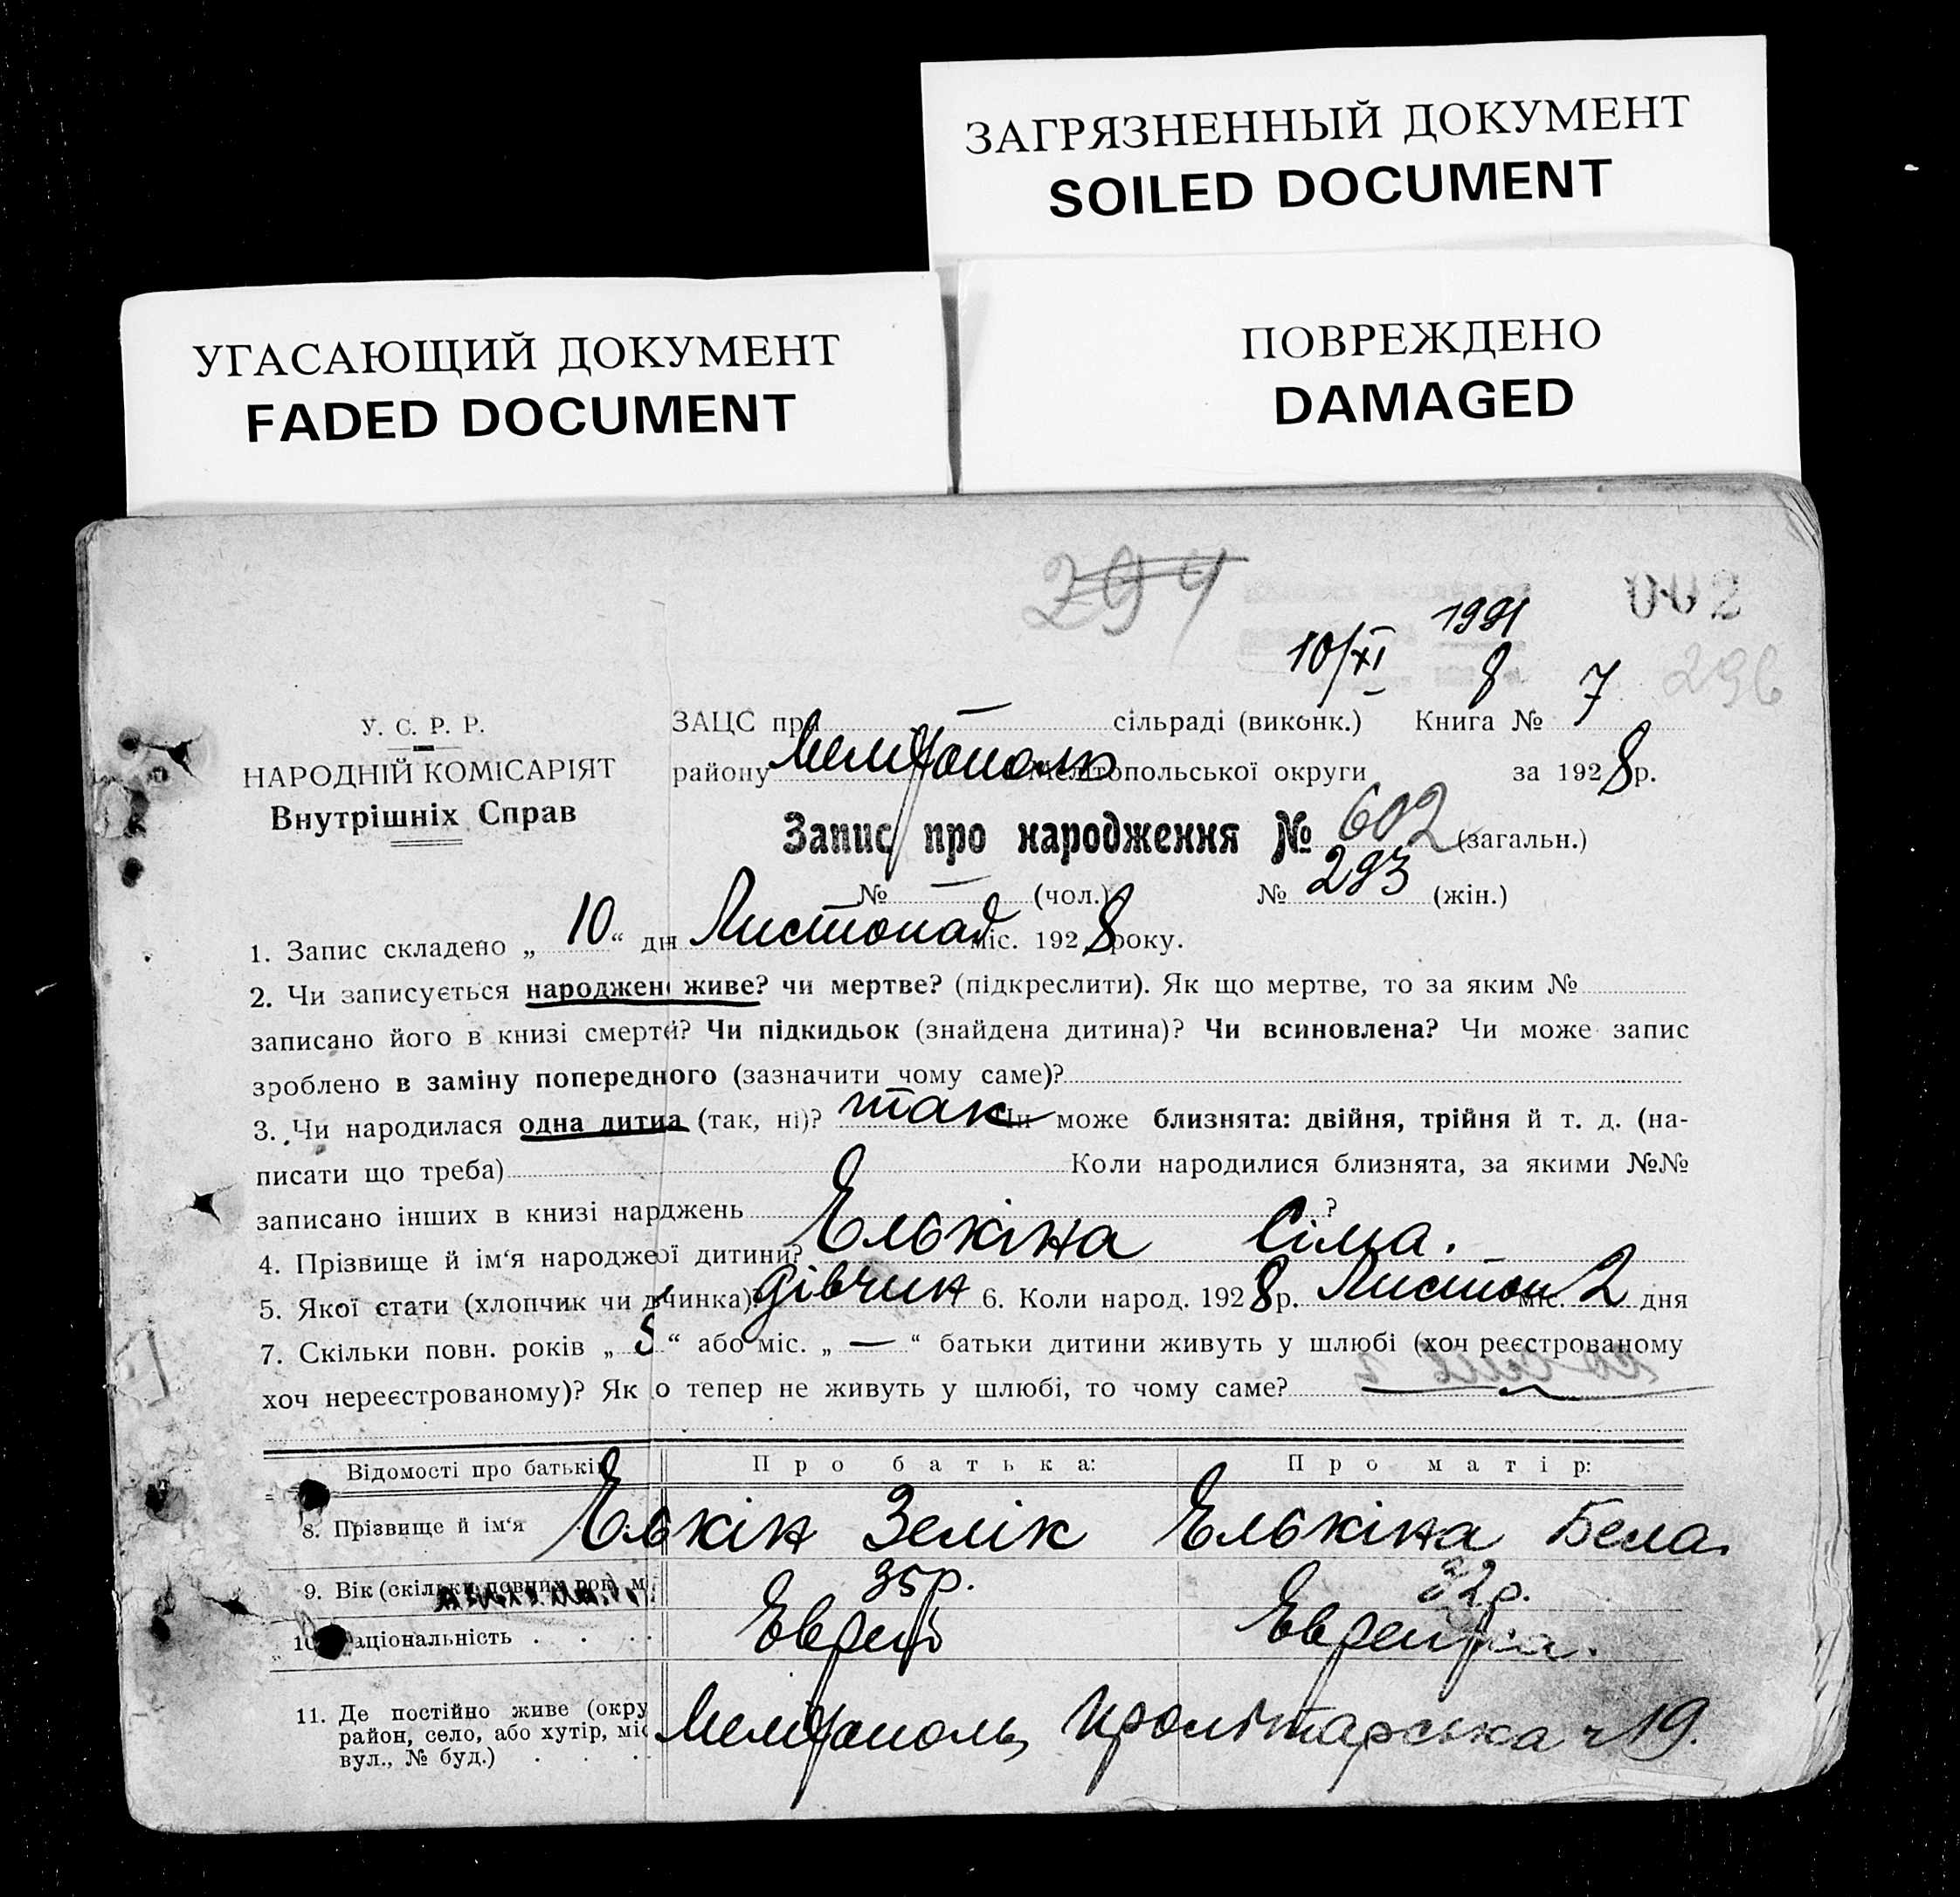 ЗАГРЯЗНЕННЫЙ ДОКУМЕНТ
SOILED DOCUMENT
УГАСАЮЩИЙ ДОКУМЕНТ
FADED DOCUMENT
ПОВРЕЖДЕНО
DAMAGED
294
002
10/XI
8
296
У. С. Р. Р.
НАРОДНІЙ КОМІСАРІЯТ
Внутрішніх Справ
ЗАЦС при — сільраді (виконк.) Книга № 7
району Мелітополь Мелітопольської округи за 1928 р.
Запис про народження № 602 (загальн.)
№ — (чол.) № 293 (жін.)
1. Запис складено „ 10 “ дня Листопад міс. 1928 року.
2. Чи записується народжене живе? чи мертве? (підкреслити). Як що мертве, то за яким №
записано його в книзі смерти? Чи підкидьок (знайдена дитина)? Чи всиновлена? Чи може запис
зроблено в заміну попередного (зазначити чому саме)?
3. Чи народилася одна дитина (так, ні)? так Чи може близнята: двійня, трійня й т. д. (на-
писати що треба) Коли народилися близнята, за якими №№
записано інших в книзі нарджень ?
4. Прізвище й ім‘я народжеої дитини? Елькіна Сіма.
5. Якої стати (хлопчик чи дівчинка)? дівчин 6. Коли народ. 1928 р. Листоп міс. 2 дня
7. Скільки повн. років „ 8 “ або міс. „ — “ батьки дитини живуть у шлюбі (хоч реєстрованому
хоч нереєстрованому)? Як що тепер не живуть у шлюбі, то чому саме?
Відомості про батьків Про батька: Про матір:
8. Прізвище й ім‘я Елькін Зелік Елькіна Бела.
9. Вік (скільки повних рок. м. 35 р. 32 р.
10. Національність . . . . Еврей Еврейка.
11. Де постійно живе (окру
район, село, або хутір, міс Мелітополь, Пролітарська 19.
вул., № буд.) . . . .